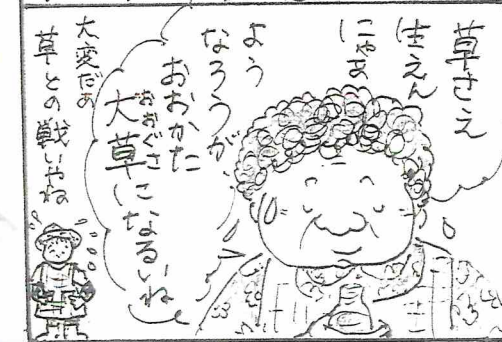 草さえ
生えん
にゃあ
よう
なろうが
おおかた
大草になるいね
おおぐさ
大変だあ
草との戦いやね